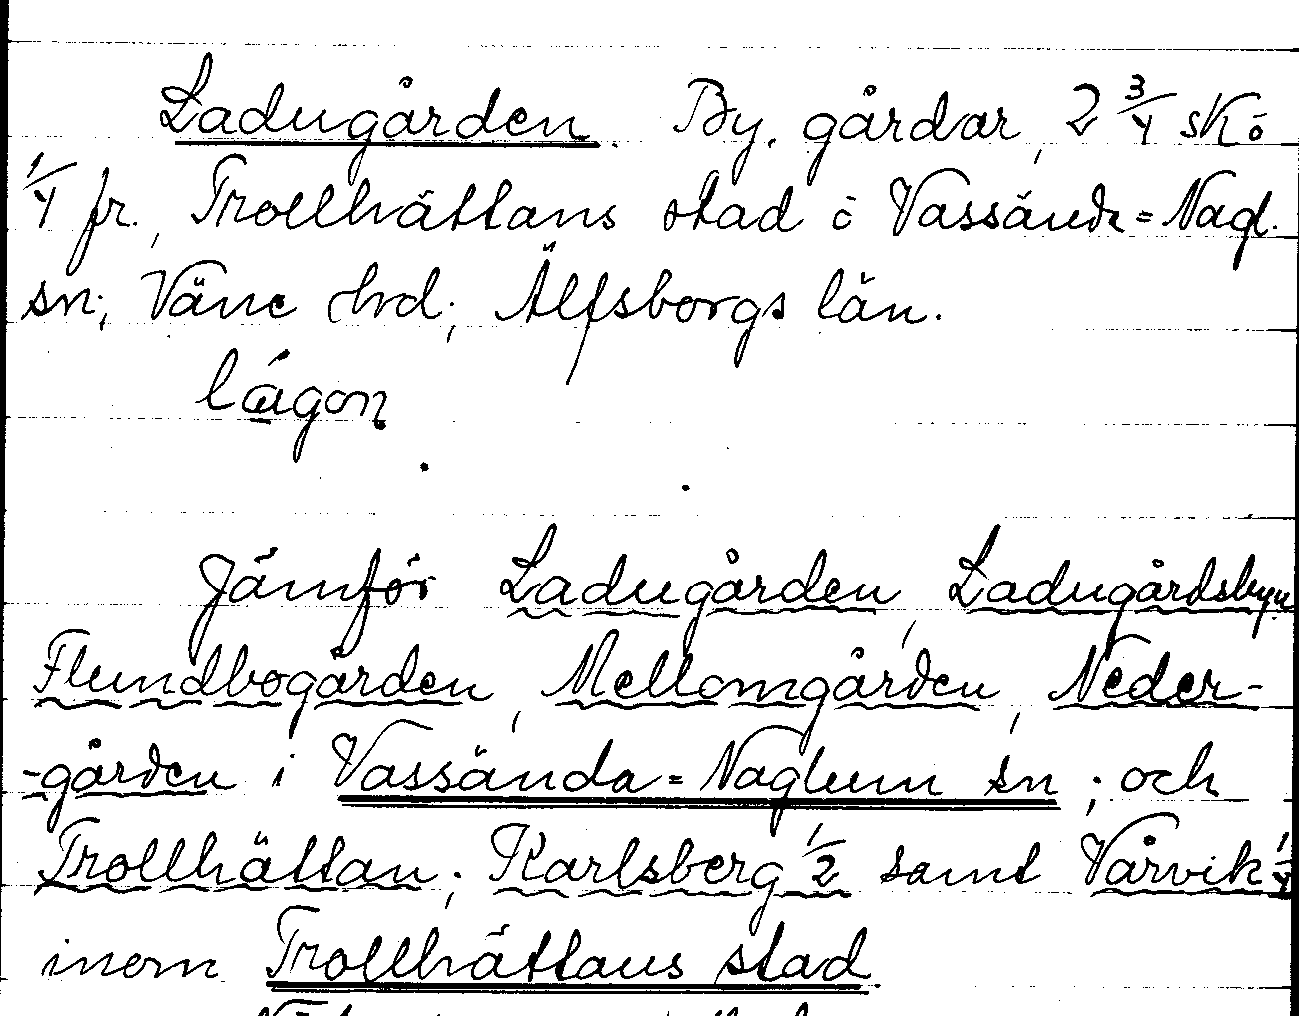 Ladugården. By, gårdar, 2 3/4 sk ö
1/4 fr., Trollhättans stad o Vassända=Nagl.
sn; Väne hd; Älfsborgs län.
lágon
Jämför Ladugården, Ladugårdsbyn
Flundbogården, Mellomgården, Neder-
-gården i Vassända=Naglum sn; och
Trollhättan; Karlsberg 1/2 samt Vårvik 1/4
inom Trollhättans stad.